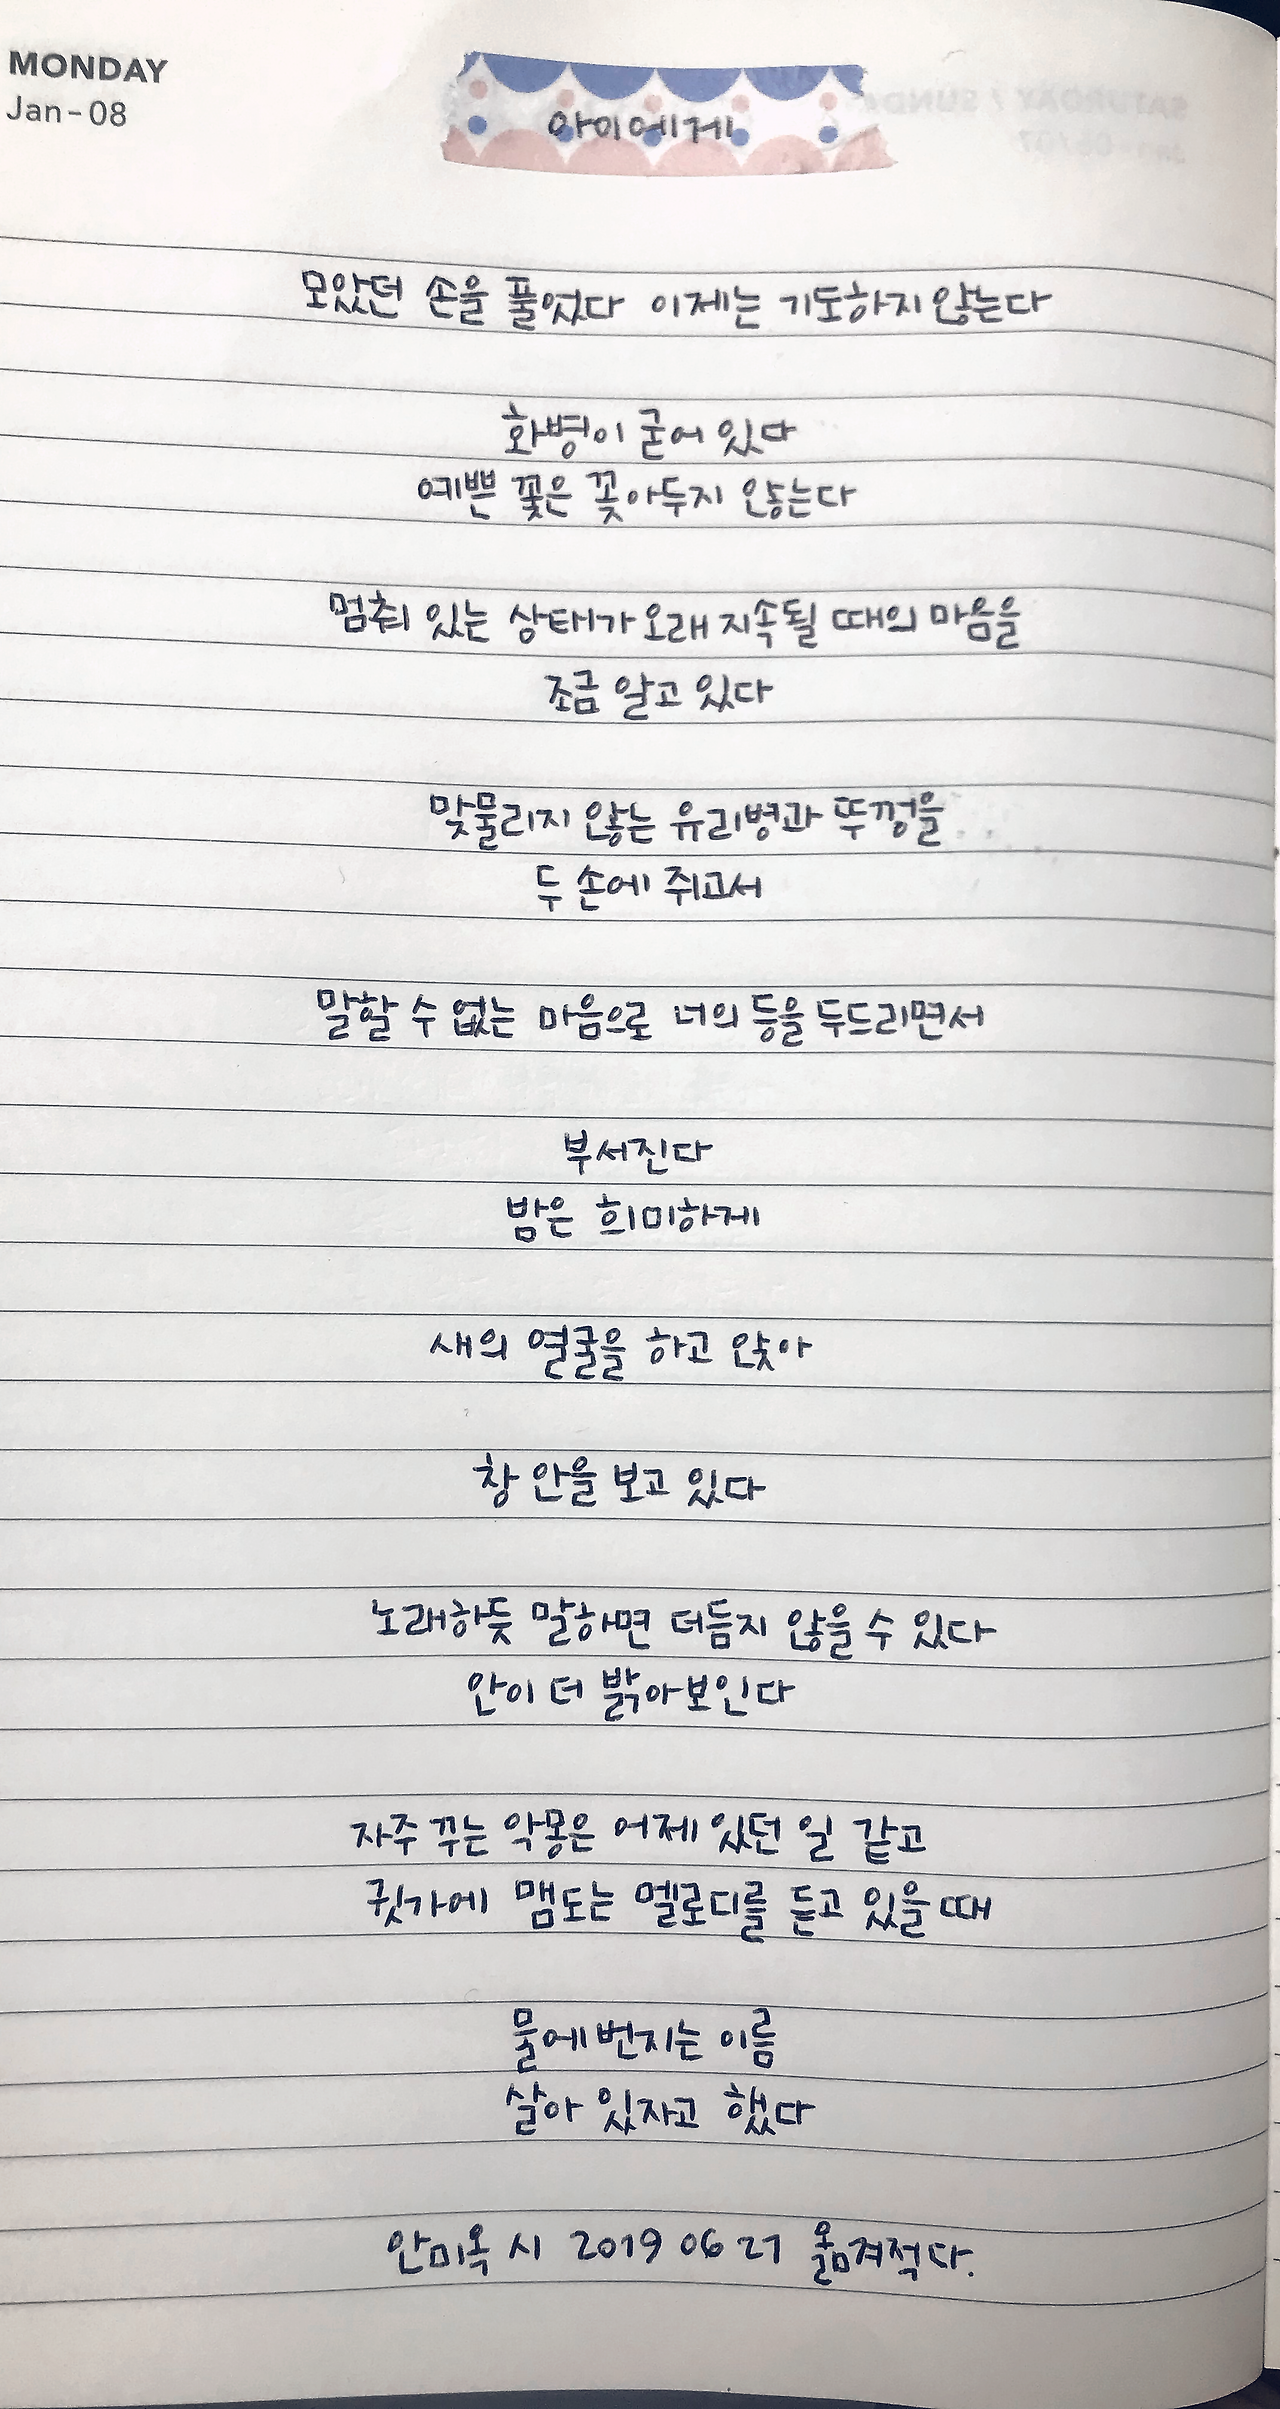 MONDAY
Jan-08
아이에게
모았던 손을 풀었다 이제는 기도하지 않는다
화병이 굳어 있다
예쁜 꽃은 꽂아두지 않는다
멈춰 있는 상태가 오래 지속될 때의 마음을
조금 알고 있다
맞물리지 않는 유리병과 뚜껑을
두 손에 쥐고서
말할 수 없는 마음으로 너의 등을 두드리면서
부서진다
밤은 희미하게
새의 얼굴을 하고 앉아
창 안을 보고 있다
노래하듯 말하면 더듬지 않을 수 있다
안이 더 밝아보인다
자주 꾸는 악몽은 어제 있던 일 같고
귓가에 맴도는 멜로디를 듣고 있을 때
물에 번지는 이름
살아 있자고 했다
안미옥 시 2019 06 27 옮겨적다.